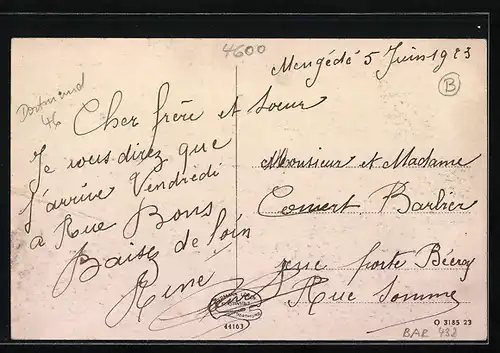 4600
Mengédé 5 Juin 1923
B
Dortmund
46
Cher frère et Soeur
Je vous direz que
J'arrive Vendredi
a Rue Bons
Baisez de loin
Rene
Monsieur et Madame
Comert Barbier
porte
Rue Somme
44163
O 3185 23
BAR 438